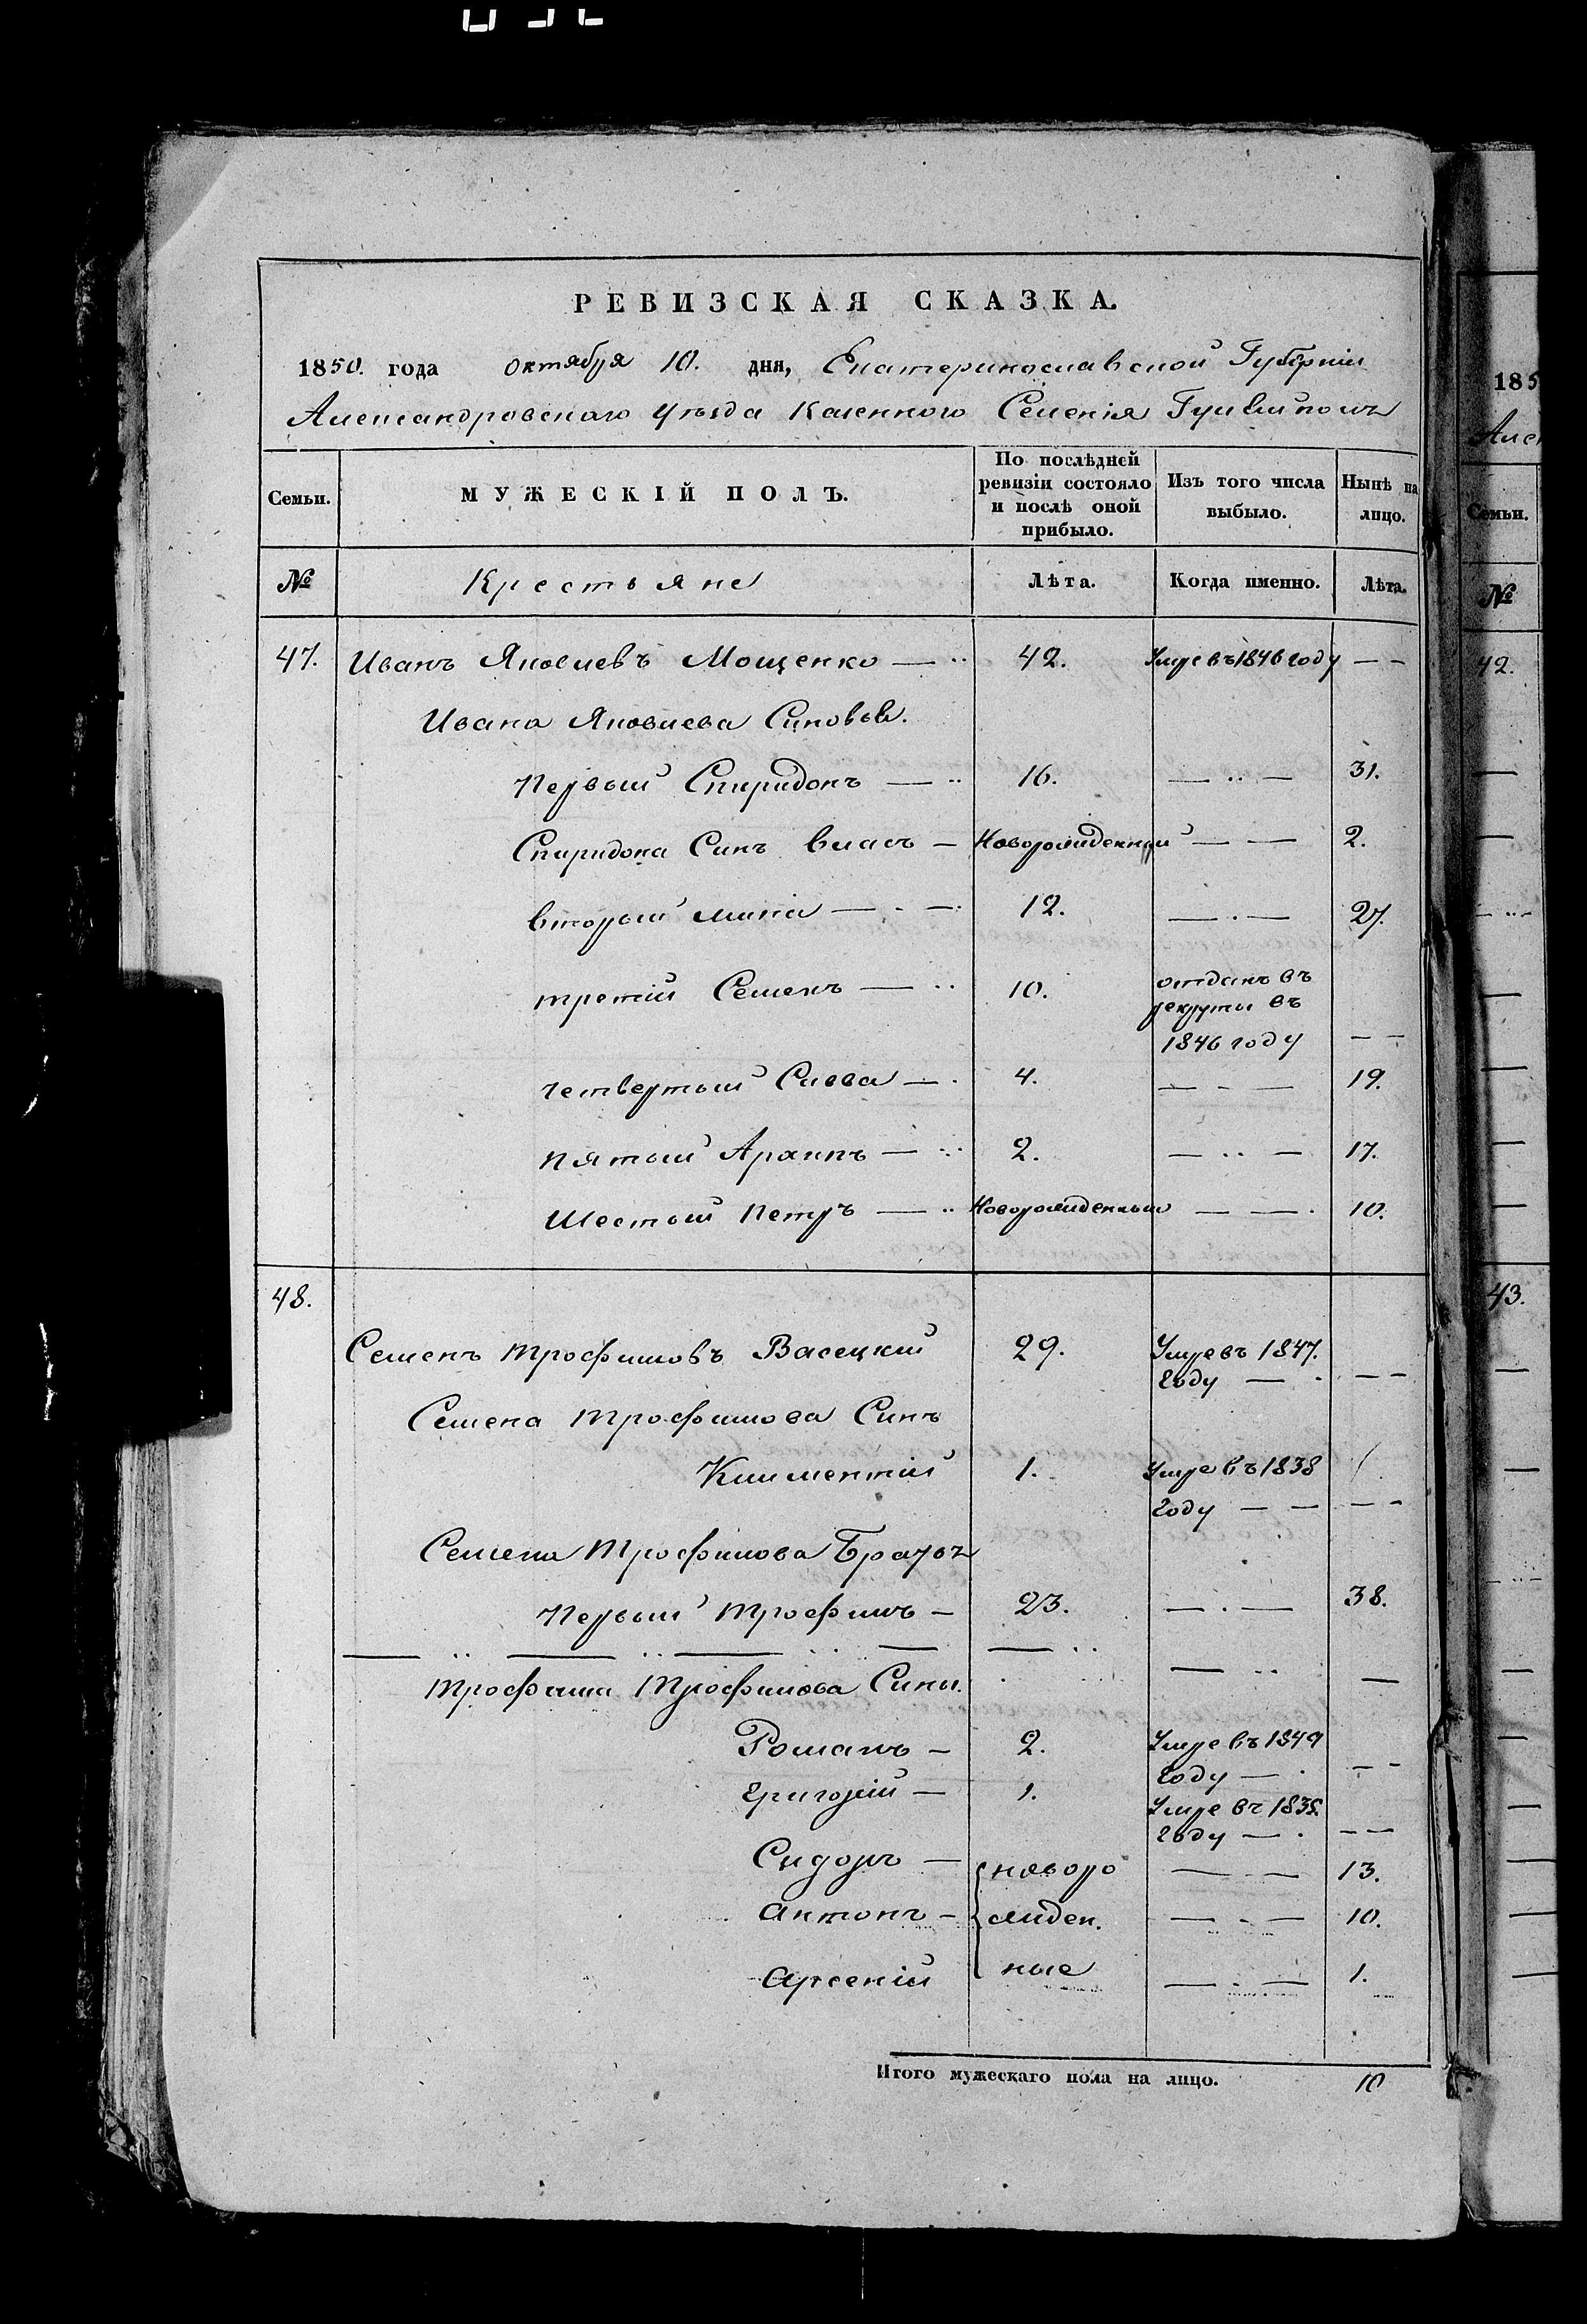 РЕВИЗСКАЯ СКАЗКА.
1850. года октября 10. дня, Екатеринославской Губерніи
Александровского уѣзда Казенного Селенія
Семьи. МУЖЕСКІЙ ПОЛЪ. По послѣдней ревизіи состояло и послѣ оной прибыло. Изъ того числа выбыло. Нынѣ на лицо.
№ Крестьяне Лѣта. Когда именно. Лѣта.
47. Иванъ Яковлевъ Мощенко — ·· 42. Умре въ 1846 году — —
Ивана Яковлева Синовья.
Первый Спиридонъ — ·· 16. — ·· — 31.
Спиридона Синъ Власъ — Новорожденный — — 2.
вторый мина — - — 12. — · — 27.
третій Семенъ — ·· 10. отданъ въ
рекруты въ
1846 году — —
четвертый Савва — · 4. — - — 19.
пятый Архипъ — ·· 2. — ·· — 17.
Шестый Петръ — ·· Новорожденный — — · 10.
48.
Семенъ Трофимовъ Васецкий 29. Умре въ 1847.
году — · — —
Семена Трофимова Синъ
Климентій 1. Умре въ 1838
году — — — —
Семена Трофимова Братья
Первый Трофимъ — 23. — · — 38.
— ·· — ·· — ·· — — ··
Трофима Трофимова Сины. — ·· —
Романъ — 2. Умре въ 1849
году — · — -
григорій — 1. Умре въ 1838.
году — · — —
Сидоръ — новоро — - — 13.
Антонъ — жден. — - — 10.
Арсеній ные — - — 1.
Итого мужескаго пола на лицо. 10
185
Алек
Семьи.
№
42.
43.